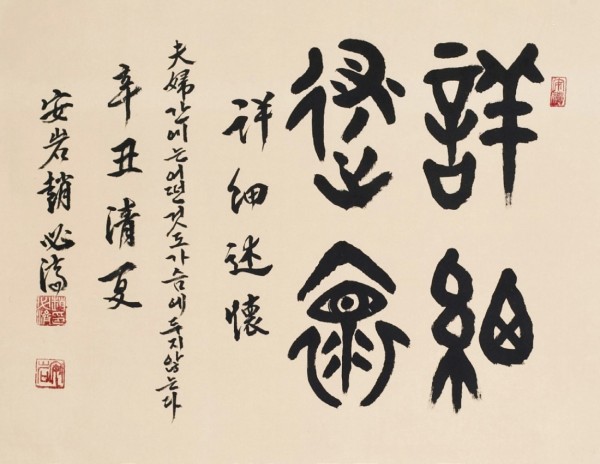 詳細
述懷
詳細述懷
夫婦간에는 어떤 것도 가슴에 두지 않는다
辛丑清夏
安岩 趙必濟